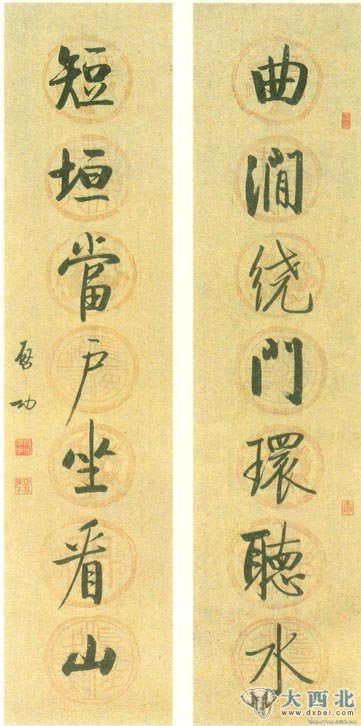 曲澗绕門環聽水
短垣當户坐看山
启功
大西北
www.dxbei.com